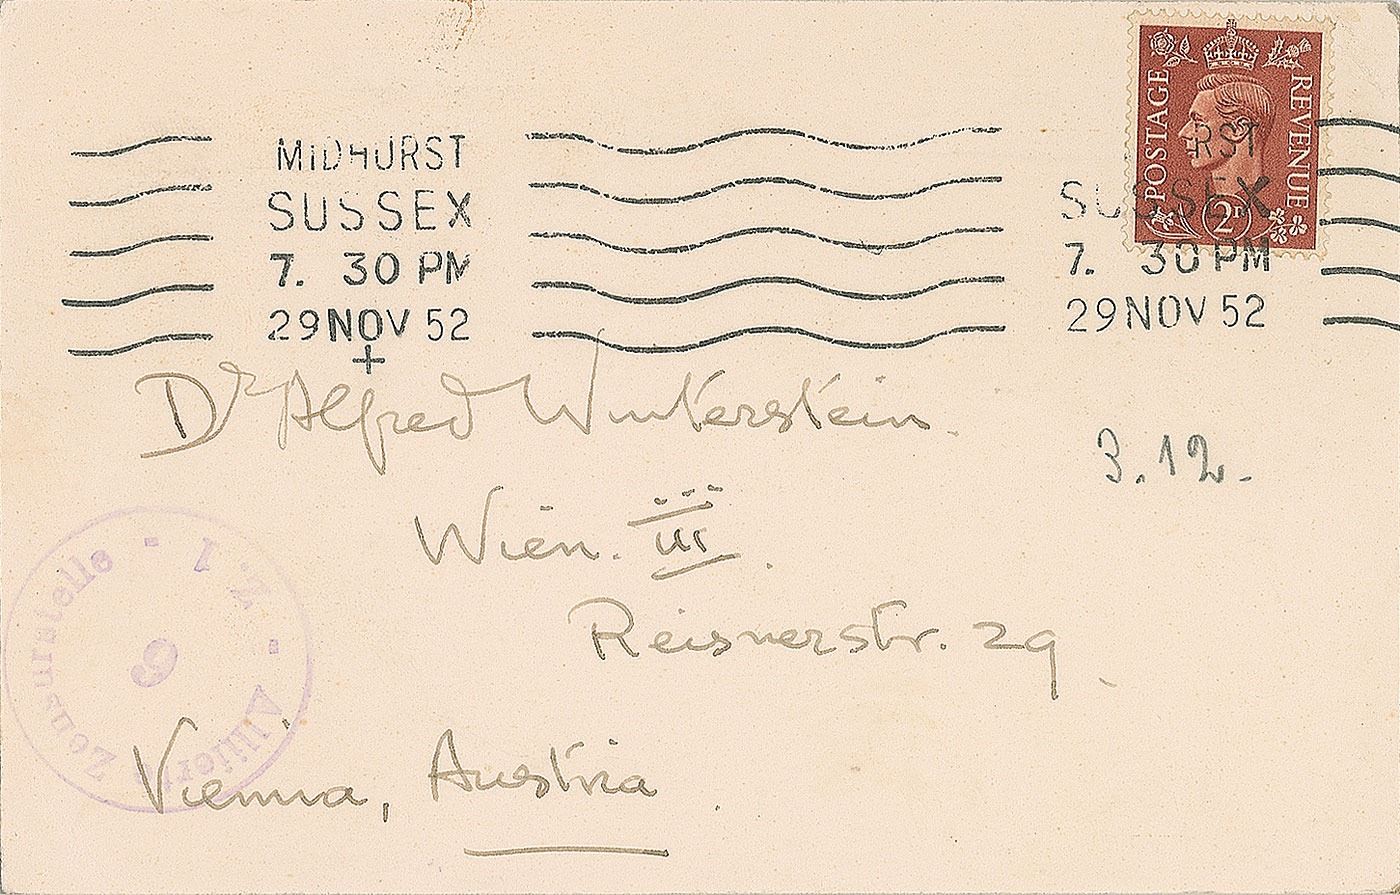 POSTAGE REVENUE
2D
MIDHURST
SUSSEX
7. 30 PM
29 NOV 52
RST
SUSSEX
7. 30 PM
29 NOV 52
Dr Alfred Winterstein.
3.12.
Wien. III.
Reisnerstr. 29
Alliierte Zensurstelle - Z. I -
9
Vienna, Austria